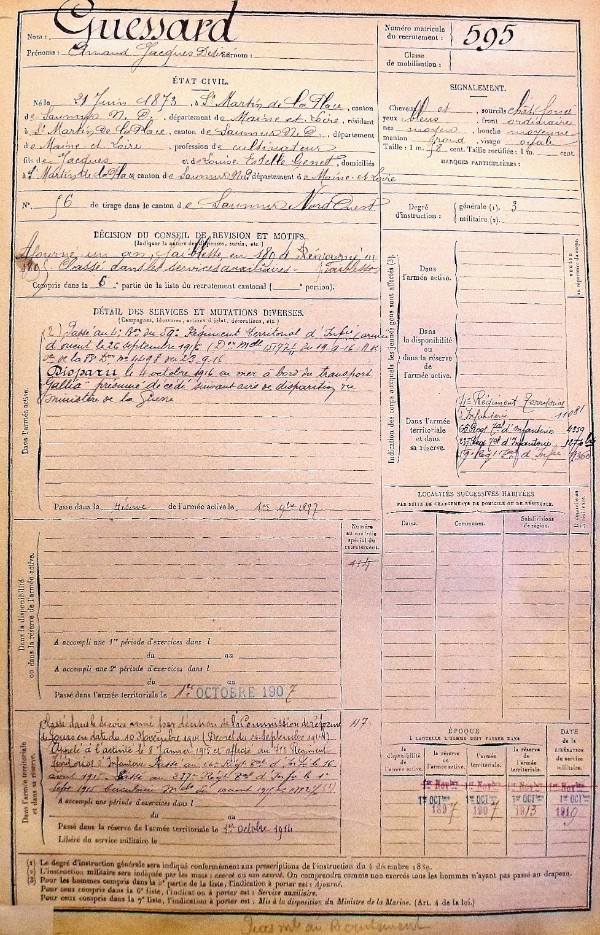 Nom : Guessard
Prénoms : Armand Jacques Désiré Surnom :
Numéro matricule du recrutement : 595
Classe de mobilisation :
ÉTAT CIVIL.
Né le 21 Juin 1873, à St Martin de la Place, canton
de Saumur N. O., département de Maine et Loire, résidant
à St Martin de la Place, canton de Saumur N. O., département
de Maine et Loire, profession de cultivateur
fils de Jacques et de Louise Estelle Genet, domiciliés
à St Martin de la Place canton de Saumur N.O. département de Maine-et-Loire
N° 56 de tirage dans le canton de Saumur Nord Ouest
SIGNALEMENT.
Cheveux et sourcils
yeux bleus front ordinaire
nez moyen bouche moyenne
menton rond visage ovale
Taille : 1 m. cent. Taille rectifiée : 1 m. cent.
MARQUES PARTICULIÈRES :
Degré d'instruction : générale (1). 3
militaire (2).
DÉCISION DU CONSEIL DE RÉVISION ET MOTIFS.
(Indiquer la nature des dispenses, sursis, etc.)
Ajourné un an, faiblesse, en 189 Réajourné en
189 Classé dans les services auxiliaires. faiblesse
Compris dans la 6e partie de la liste du recrutement cantonal ( portion).
DÉTAIL DES SERVICES ET MUTATIONS DIVERSES.
(Campagnes, blessures, actions d'éclat, décorations, etc.)
Passé au du 59e Régiment Territorial d'Infie (armée
d'orient le 26 septembre 1916 du 19-9-16
de la 4498 du 23.9.16
Disparu le 4 octobre 1916 en mer à bord du transport
"Gallia" présumé décédé suivant avis de disparition du
ministre de la Guerre
Dans l'armée active.
Passé dans la Réserve de l'armée active le 1er 9bre 1897
Indication des corps auxquels les jeunes gens sont affectés (3)
Dans l'armée active.
Dans la disponibilité ou dans la réserve de l'armée active.
Dans l'armée territoriale et dans sa réserve.
71e Régiment Territorial
d'Infanterie 11081
66 Régt Tal d'Infanterie 4359
237 Régt Tal d'Infanterie
59e Régt Tal d'Infie
LOCALITÉS SUCCESSIVES HABITÉES
PAR SUITE DE CHANGEMENTS DE DOMICILE OU DE RÉSIDENCE.
Dates. Communes. Subdivisions de région.
Dans la disponibilité ou dans la réserve de l'armée active.
Numéro au contrôle spécial du recrutement.
A accompli une 1re période d'exercices dans l
du au
A accompli une 2e période d'exercices dans l
du au
Passé dans l'armée territoriale le 1er OCTOBRE 1907
Dans l'armée territoriale et dans sa réserve.
Classé dans le service armé par décision de la Commission de réforme
de Tours en date du 10 Novembre 1914 (Décret du 26 septembre 1914)
Appelé à l'activité le 8 Janvier 1915 et affecté au 71e Régiment
Territorial d'Infanterie. Passé au 66e Régt Tal d'Infie le 16
avril 1915. Passé au 237e Régt Tal d'Infie le 1er
Sept 1915
117
A accompli une période d'exercices dans l
du au
Passé dans la réserve de l'armée territoriale le 1er octobre 1914
Libéré du service militaire le
ÉPOQUE
A LAQUELLE L'HOMME DOIT PASSER DANS
la disponibilité de l'armée active. la réserve de l'armée active. l'armée territoriale. la réserve de l'armée territoriale.
DATE de la libération du service militaire.
1er Novbre 1er Novbre 1er Novbre 1er Novbre
1er OCTbre 1897 1er OCTbre 1907 1er OCTbre 1913 1er OCTbre 1919
(1) Le degré d'instruction générale sera indiqué conformément aux prescriptions de l'instruction du 4 décembre 1889.
(2) L'instruction militaire sera indiquée par les mots : exercé ou non exercé. On comprendra comme non exercés tous les hommes n'ayant pas passé au drapeau.
(3) Pour les hommes compris dans la 2e partie de la liste, l'indication à porter est : Ajourné.
Pour ceux compris dans la 6e liste, l'indication à porter est : Service auxiliaire.
Pour ceux compris dans la 7e liste, l'indication à porter est : Mis à la disposition du Ministre de la Marine. (Art. 4 de la loi.)